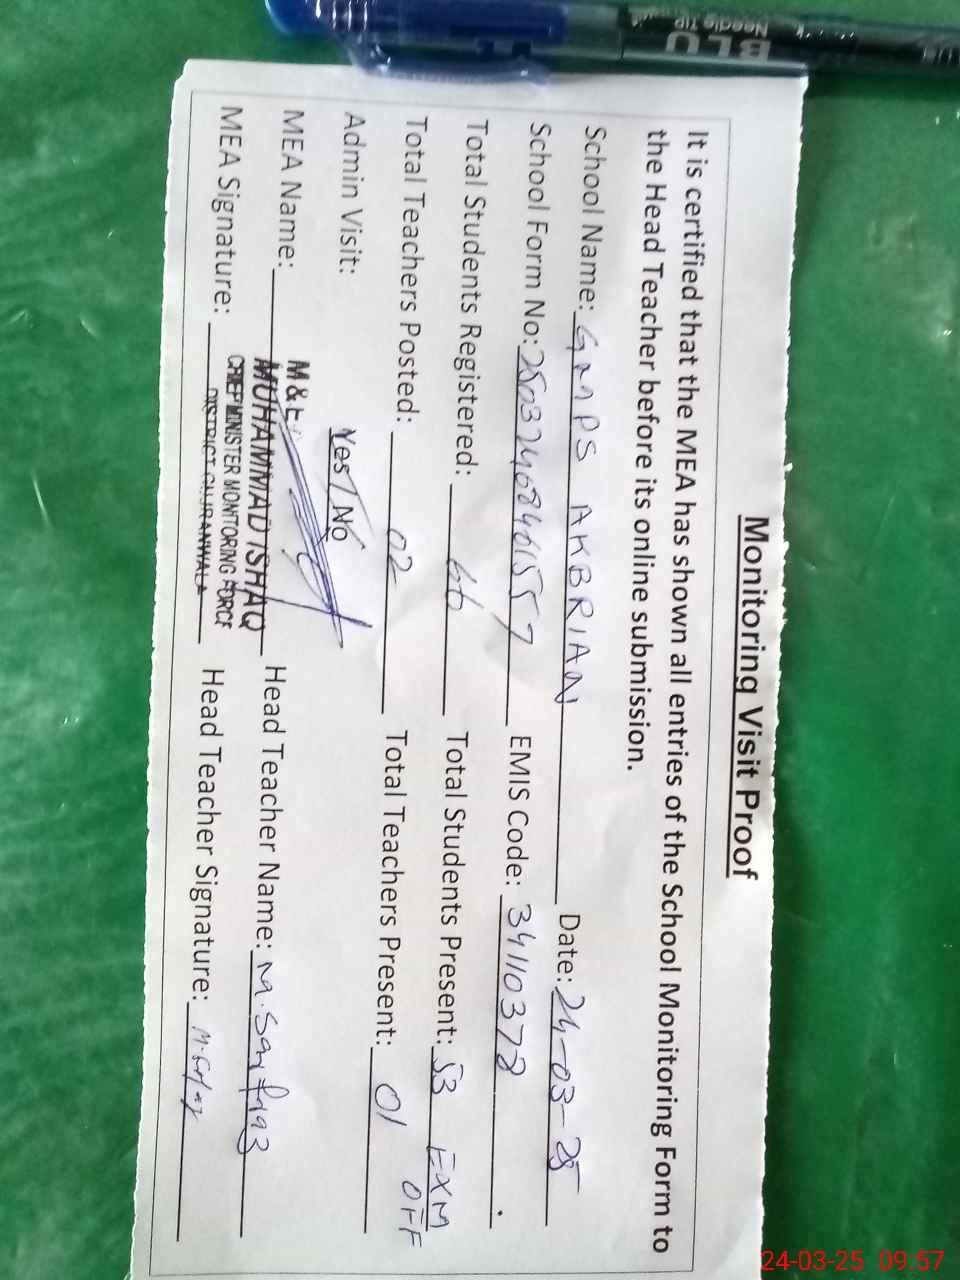 Monitoring Visit Proof
It is certified that the MEA has shown all entries of the School Monitoring Form to
the Head Teacher before its online submission.
School Name: GMPS AKBRIAN Date: 24-03-25
School Form No: EMIS Code: 34110372
Total Students Registered: 66 Total Students Present: 53 EXM
Total Teachers Posted: 02 Total Teachers Present: 01 OFF
Admin Visit: Yes / No
M & E
MEA Name: MUHAMMAD ISHAQ Head Teacher Name: M. Sarfraz
CHIEF MINISTER MONITORING FORCE
MEA Signature: DISTRICT GUJRANWALA Head Teacher Signature:
24-03-25 09:57